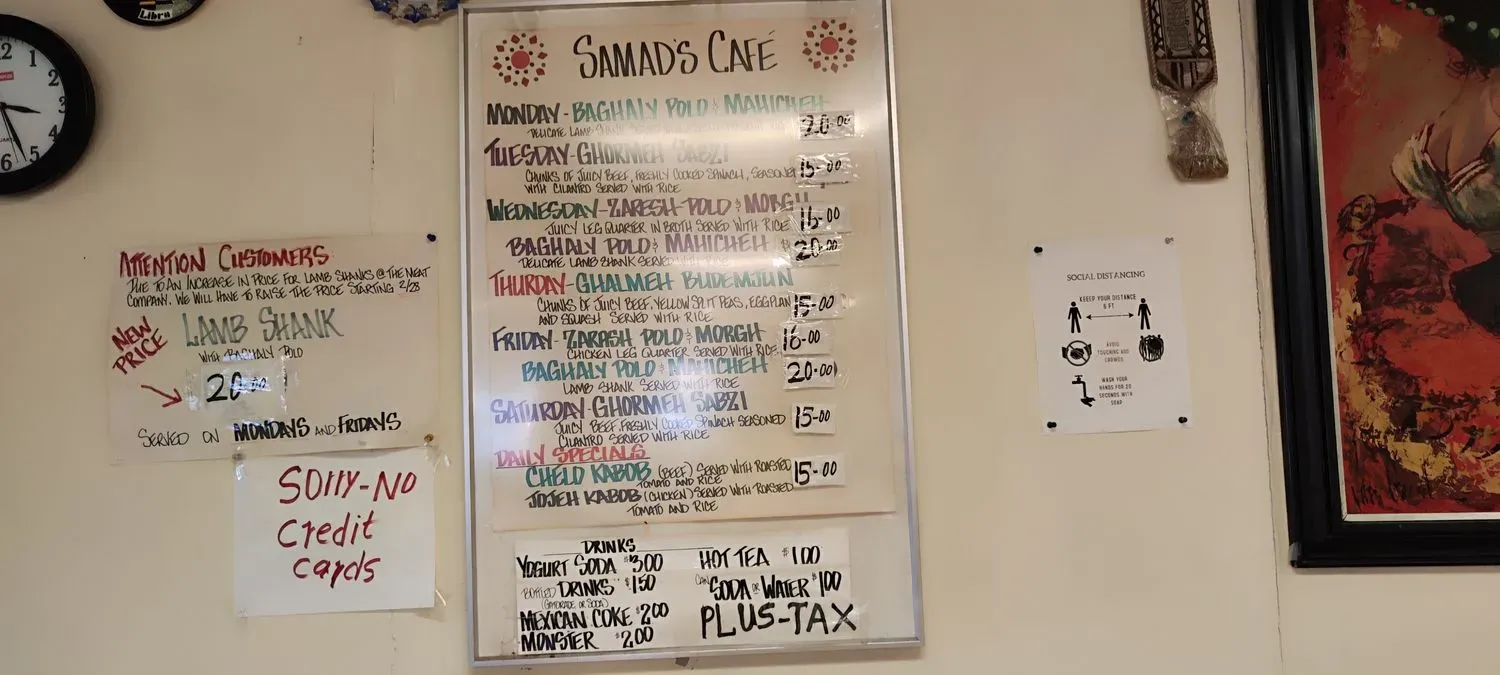 Libra
12
1
2
3
4
5
6
SAMAD'S CAFÉ
MONDAY - BAGHALY POLO & MAHICHEH
DELICATE LAMB SHANK SERVED
20.00
TUESDAY - GHORMEH SABZI
CHUNKS OF JUICY BEEF, FRESHLY COOKED SPINACH, SEASONED
WITH CILANTRO SERVED WITH RICE
15-00
WEDNESDAY - ZARESH POLO & MORGH
JUICY LEG QUARTER IN BROTH SERVED WITH RICE
16-00
BAGHALY POLO & MAHICHEH $
DELICATE LAMB SHANK SERVED WITH RICE
20-00
THURDAY - GHALMEH BUDEMJUN
CHUNKS OF JUICY BEEF, YELLOW SPLIT PEAS, EGGPLAN
AND SQUASH SERVED WITH RICE
15-00
FRIDAY - ZARASH POLO & MORGH
CHICKEN LEG QUARTER SERVED WITH RICE
16-00
BAGHALY POLO & MAHICHEH
LAMB SHANK SERVED WITH RICE
20-00
SATURDAY - GHORMEH SABZI
JUICY BEEF, FRESHLY COOKED SPINACH SEASONED
CILANTRO SERVED WITH RICE
15-00
DAILY SPECIALS
CHELO KABOB (BEEF) SERVED WITH ROASTED
TOMATO AND RICE
15-00
JOJEH KABOB (CHICKEN) SERVED WITH ROASTED
TOMATO AND RICE
DRINKS
YOGURT SODA $3.00
BOTTLED DRINKS $1.50
(GATORADE OR SODA)
MEXICAN COKE $2.00
MONSTER $2.00
HOT TEA $1.00
CAN SODA OR WATER $1.00
PLUS-TAX
ATTENTION CUSTOMERS
DUE TO AN INCREASE IN PRICE FOR LAMB SHANKS @ THE MEAT
COMPANY. WE WILL HAVE TO RAISE THE PRICE STARTING 2/28
NEW
PRICE
LAMB SHANK
WITH BAGHALY POLO
20.00
SERVED ON MONDAYS AND FRIDAYS
SORRY-NO
Credit
cards
SOCIAL DISTANCING
KEEEP YOUR DISTANCE
6 FT
AVOID
TOUCHING AND
CROWDS
WASH YOUR
HANDS FOR 20
SECONDS WITH
SOAP